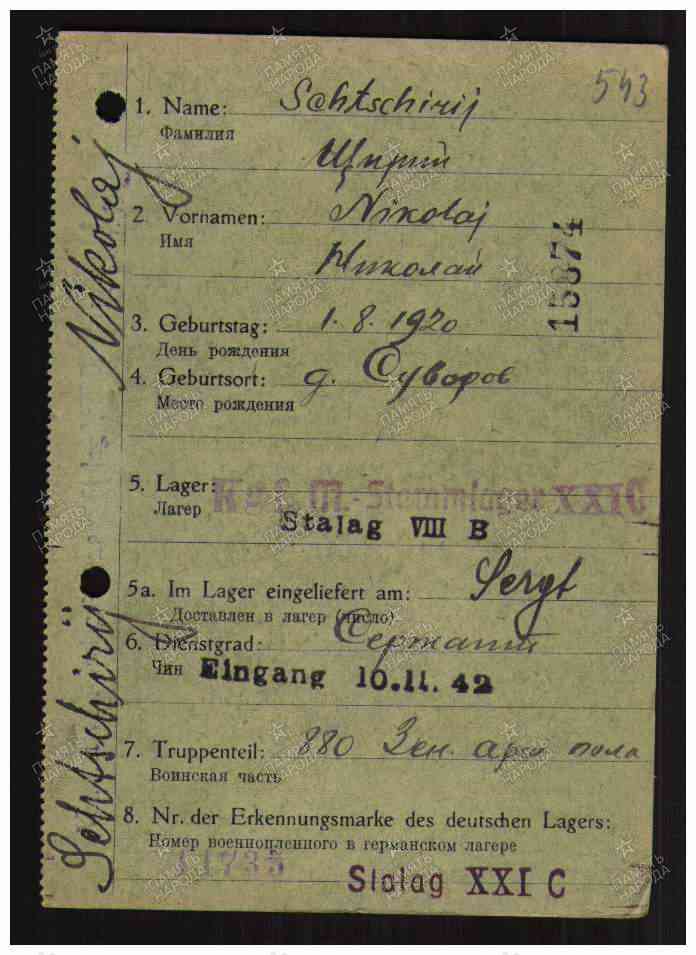 543
1. Name: Schtschirij
Фамилия
Щирий
2. Vornamen: Nikolaj
Имя
Николай
15874
3. Geburtstag: 1.8.1920
День рождения
4. Geburtsort: д. Суворов
Место рождения
5. Lager: M.-Stammlager XXIC
Лагер
Stalag VIII B
5a. Im Lager eingeliefert am: Sergt
Доставлен в лагер (число)
6. Dienstgrad: Сержант
Чин
Eingang 10.11.42
7. Truppenteil: 880 Зен. арт полк
Воинская часть
8. Nr. der Erkennungsmarke des deutschen Lagers:
Номер военнопленного в германском лагере
Stalag XXI C
Schtschirij Nikolaj
ПАМЯТЬ НАРОДА